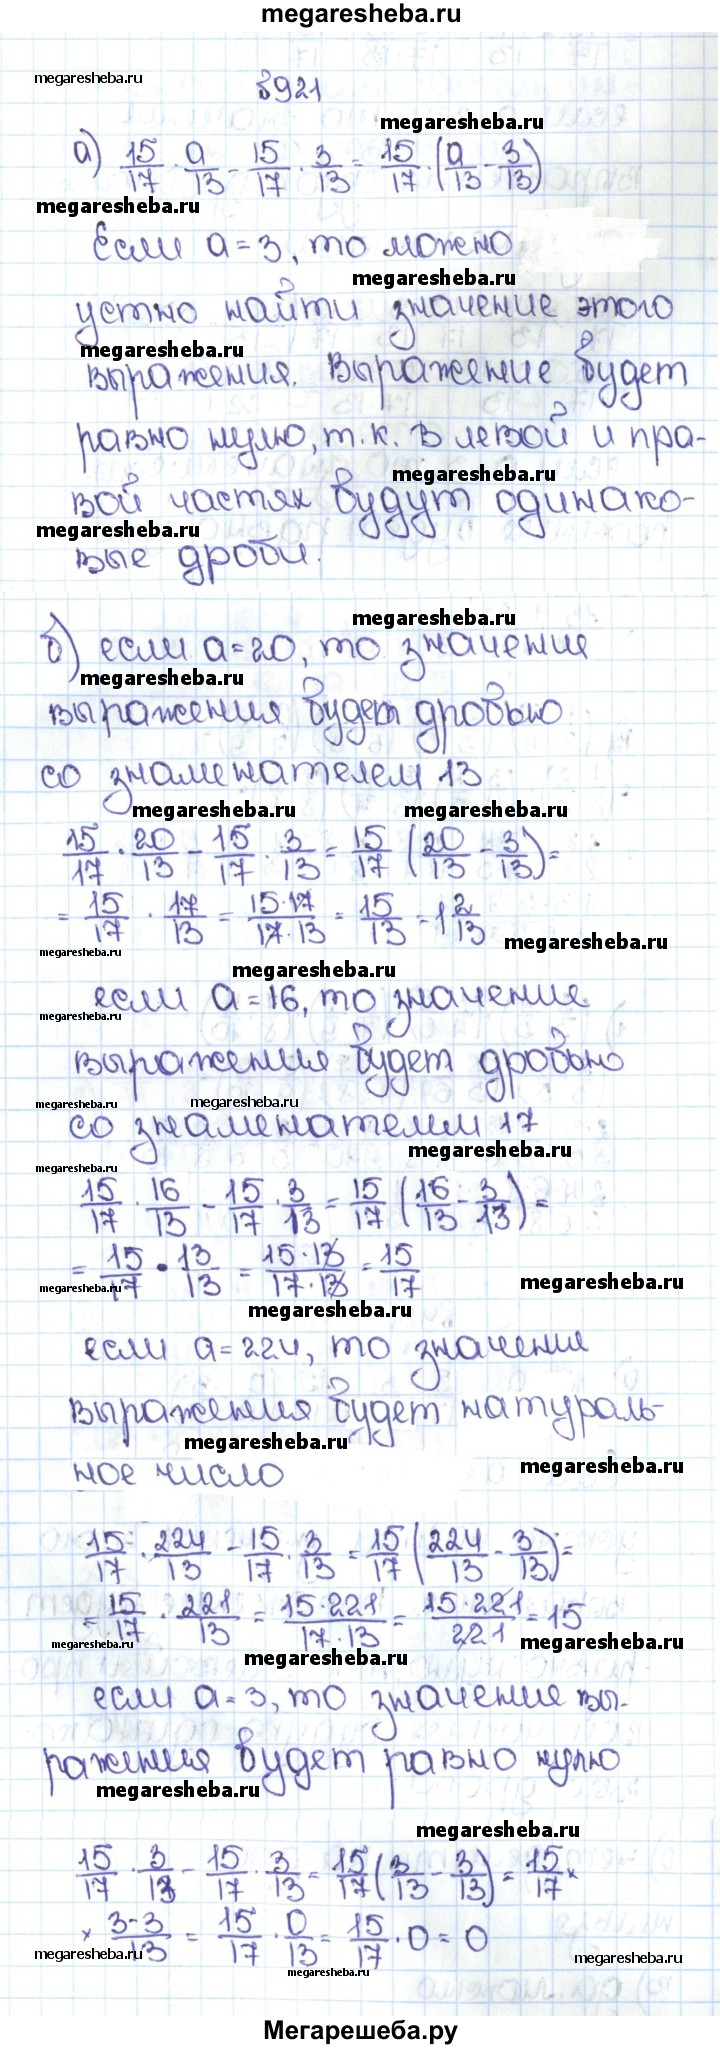 megaresheba.ru
megaresheba.ru
921
megaresheba.ru
а) 15/17 · а/13 - 15/17 · 3/13 = 15/17 · (а/13 - 3/13)
megaresheba.ru
Если а = 3, то можно
megaresheba.ru
устно найти значение этого
megaresheba.ru
выражения. Выражение будет
равно нулю, т.к. в левой и пра-
megaresheba.ru
вой частях будут одинако-
megaresheba.ru
вые дроби.
megaresheba.ru
б) если а = 20, то значение
megaresheba.ru
выражения будет дробью
со знаменателем 13
megaresheba.ru megaresheba.ru
15/17 · 20/13 - 15/17 · 3/13 = 15/17 (20/13 - 3/13) =
= 15/17 · 17/13 = 15·17/17·13 = 15/13 = 1 2/13
megaresheba.ru megaresheba.ru
megaresheba.ru
если а = 16, то значение
megaresheba.ru
выражения будет дробью
megaresheba.ru megaresheba.ru
со знаменателем 17
megaresheba.ru
megaresheba.ru
15/17 · 16/13 - 15/17 · 3/13 = 15/17 (16/13 - 3/13) =
= 15/17 · 13/13 = 15·13/17·13 = 15/17
megaresheba.ru megaresheba.ru
megaresheba.ru
если а = 224, то значение
выражения будет натураль-
megaresheba.ru
ное число
megaresheba.ru
15/17 · 224/13 - 15/17 · 3/13 = 15/17 (224/13 - 3/13) =
= 15/17 · 221/13 = 15·221/17·13 = 15·221/221 = 15
megaresheba.ru megaresheba.ru
megaresheba.ru
если а = 3, то значение вы-
ражения будет равно нулю
megaresheba.ru
megaresheba.ru
15/17 · 3/13 - 15/17 · 3/13 = 15/17 (3/13 - 3/13) = 15/17 ×
× 3-3/13 = 15/17 · 0/13 = 15/17 · 0 = 0
megaresheba.ru megaresheba.ru
megaresheba.ru
Мегарешеба.ру